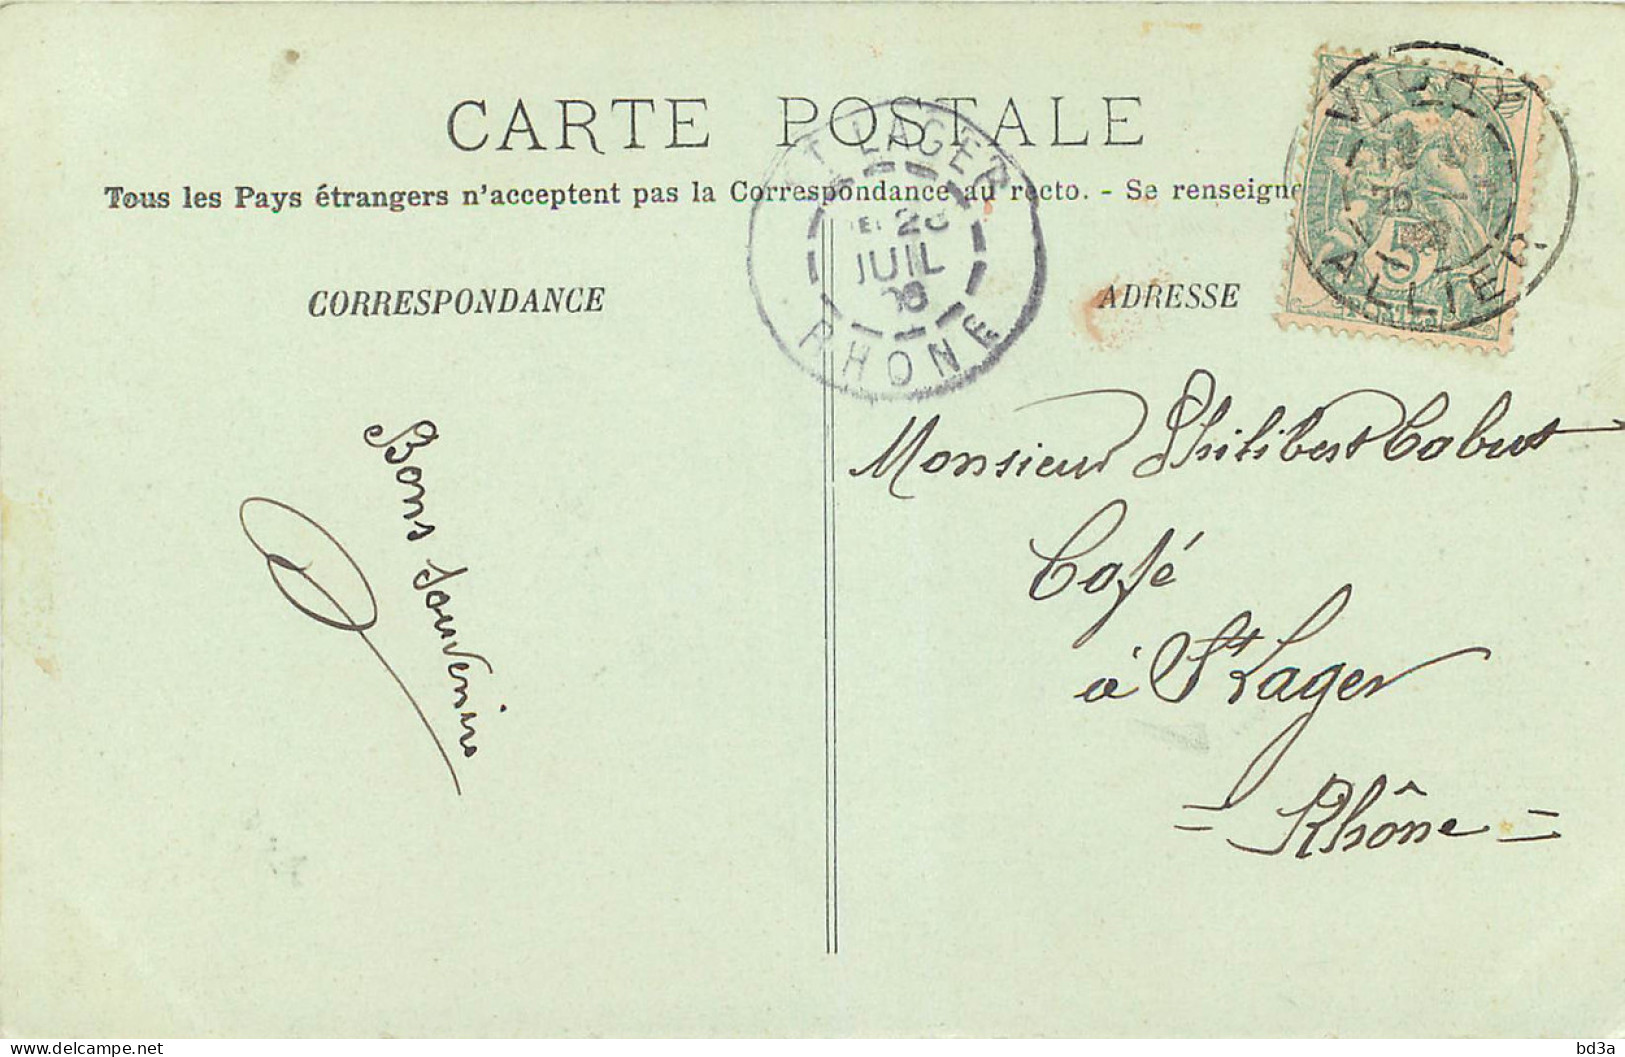 CARTE POSTALE
Tous les Pays étrangers n'acceptent pas la Correspondance au recto. - Se renseigne
CORRESPONDANCE
ADRESSE
ST LAGER
28
JUIL
08
RHONE
VICHY
ALLIER
5
Bons souvenirs
Monsieur Philibert Cabut
Café
à St Lager
= Rhône =
delcampe.net
bd3a